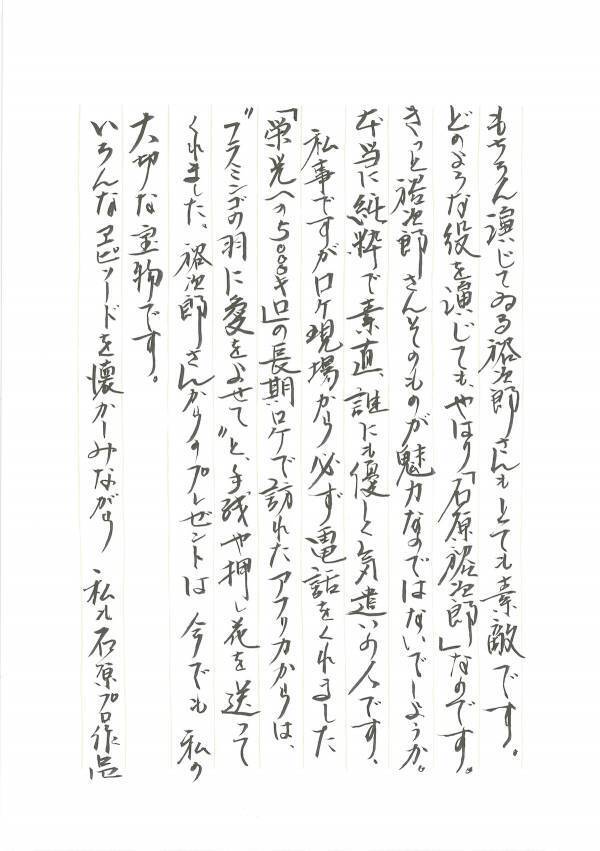 もちろん演じてゐる裕次郎さんもとても素敵です。
どのような役を演じても、やはり「石原裕次郎」なのです。
きっと裕次郎さんそのものが魅力なのではないでしょうか。
本当に純粋で素直、誰にも優しく気遣いの人です、
私事ですがロケ現場から必ず電話をくれました
「栄光への5000キロ」の長期ロケで訪れたアフリカからは、
“フラミンゴの羽に愛をよせて”と、手紙や押し花を送って
くれました。裕次郎さんからのプレゼントは 今でも 私の
大切な宝物です。
いろんなエピソードを懐かしみながら 私も石原プロ作品